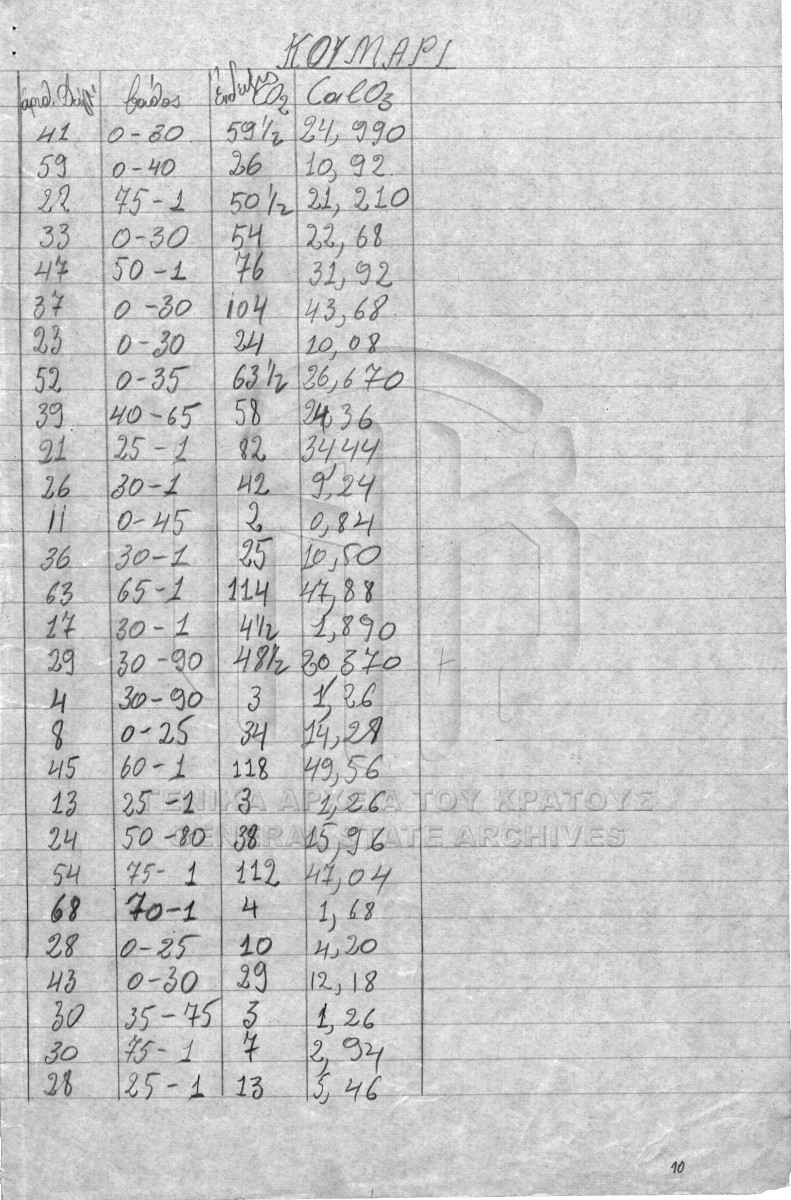 ΚΟΥΜΑΡΙ
βάθος Ένδειξις CO2 CaCO3
41 0-30 59 1/2 24,990
59 0-40 26 10,92
22 75-1 50 1/2 21,210
33 0-30 54 22,68
47 50-1 76 31,92
37 0-30 104 43,68
23 0-30 24 10,08
52 0-35 63 1/2 26,670
39 40-65 58 24,36
21 25-1 82 34,44
26 30-1 42 9,24
11 0-45 2 0,84
36 30-1 25 10,50
63 65-1 114 47,88
17 30-1 4 1/2 1,890
29 30-90 48 1/2 20,370
4 30-90 3 1,26
8 0-25 34 14,28
45 60-1 118 49,56
13 25-1 3 1,26
24 50-80 38 15,96
54 75-1 112 47,04
68 70-1 4 1,68
28 0-25 10 4,20
43 0-30 29 12,18
30 35-75 3 1,26
30 75-1 7 2,94
28 25-1 13 5,46
ΓΕΝΙΚΑ ΑΡΧΕΙΑ ΤΟΥ ΚΡΑΤΟΥΣ
GENERAL STATE ARCHIVES
10